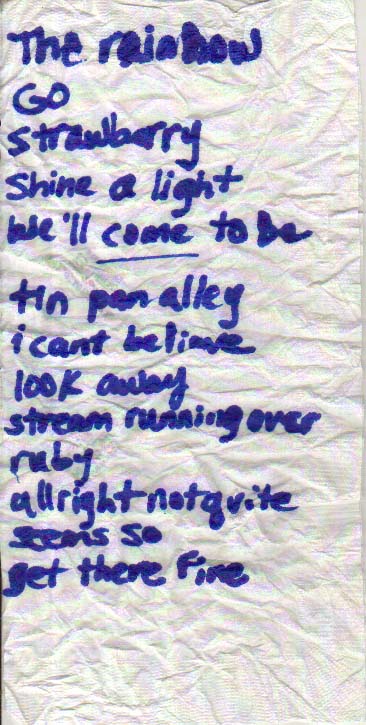 The rainbow
GO
strawberry
Shine a light
We'll come to be
tin pan alley
i cant believe
look away
stream running over
ruby
allright not quite
seems so
get there fine